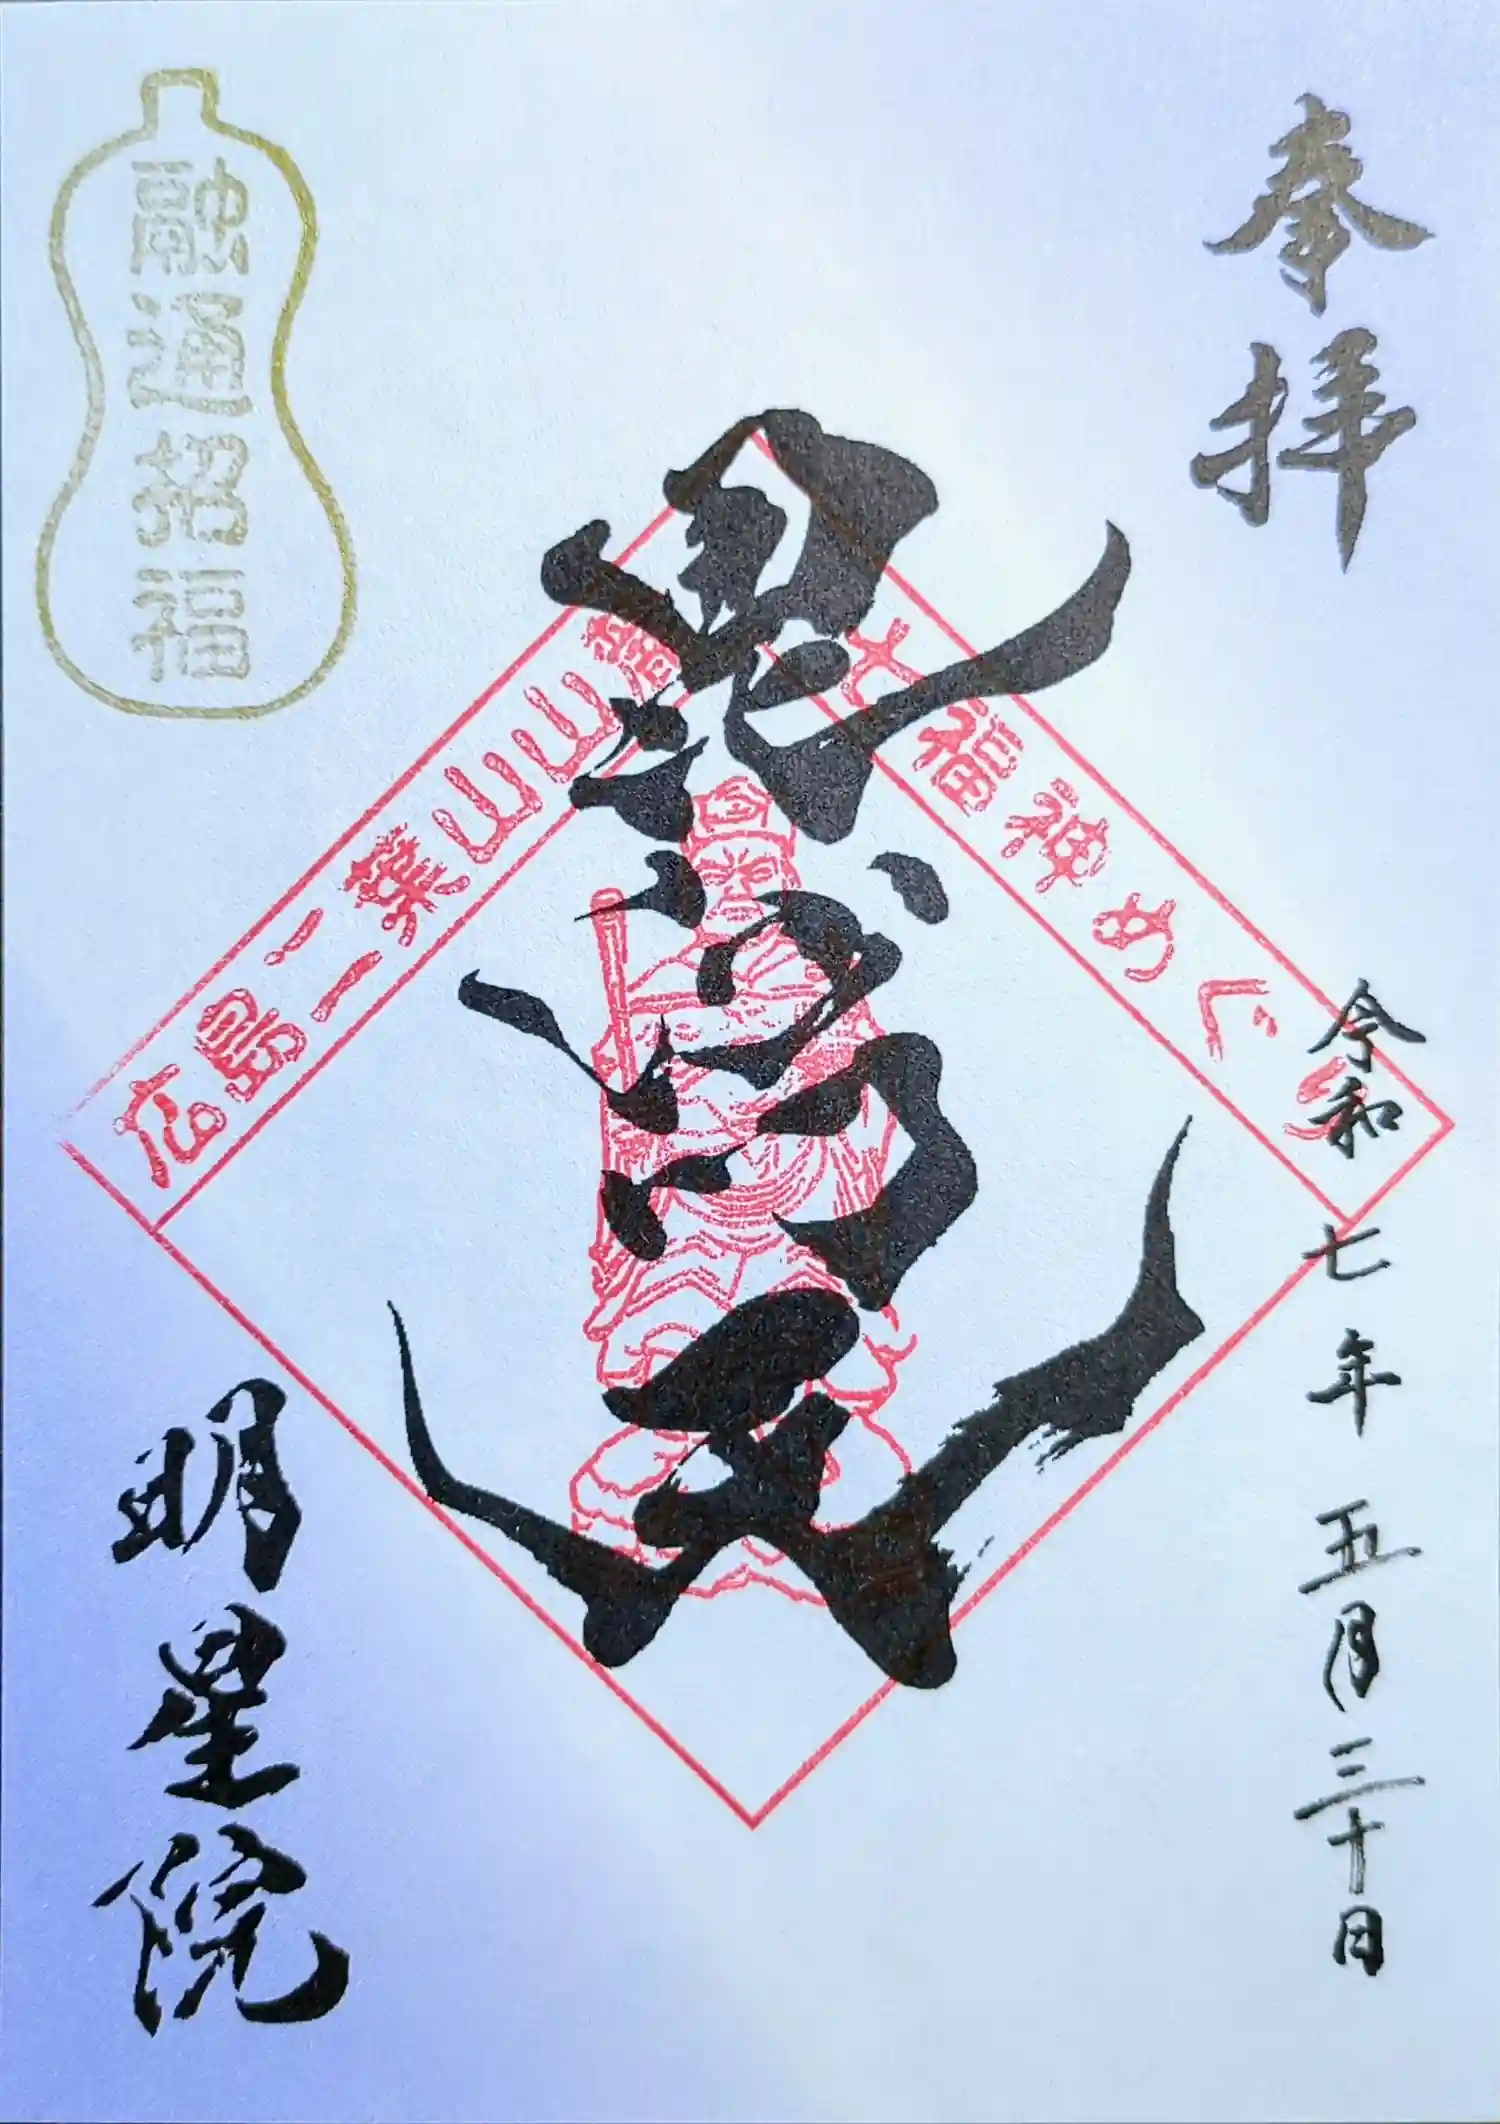 奉拝
令和七年五月三十日
七福神めぐり
広島二葉山山麓
融通招福
明星院